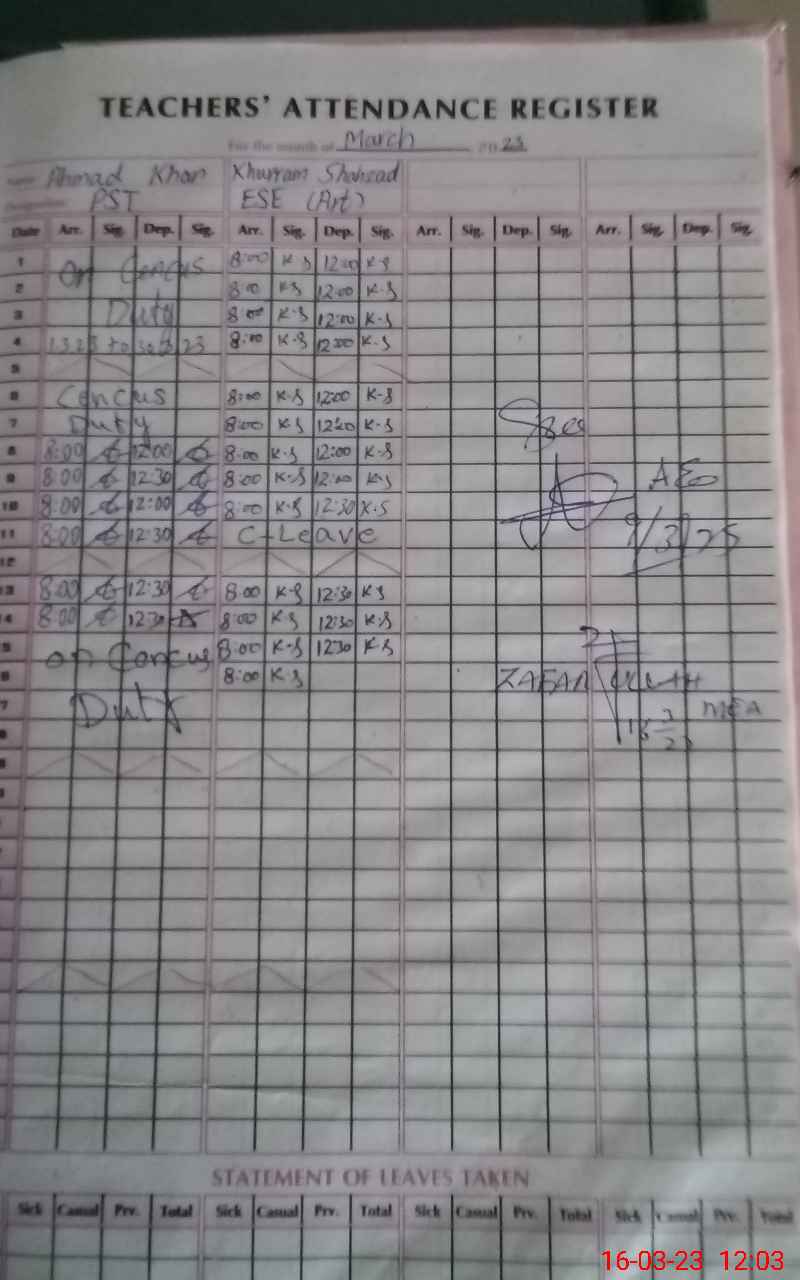 TEACHERS' ATTENDANCE REGISTER
For the month of March 2023
Name Ahmad Khan Khurram Shahzad
Designation PST ESE (Art)
Date Arr. Sig. Dep. Sig. Arr. Sig. Dep. Sig. Arr. Sig. Dep. Sig. Arr. Sig. Dep. Sig.
1 On Cencus 8:00 K-S 12:00 K-S
2 8:00 K-S 12:00 K-S
3 Duty 8:00 K-S 12:00 K-S
4 8:00 K-S 12:00 K-S
5
6 Cencus 8:00 K-S 12:00 K-S
7 Duty 8:00 K-S 12:00 K-S
8 8:00 12:00 8:00 K-S 12:00 K-S
9 8:00 12:30 8:00 K-S 12:00 K-S AEO
10 8:00 12:00 8:00 K-S 12:30 K-S
11 8:00 12:30 C-Leave
12
13 8:00 12:30 8:00 K-S 12:30 K-S
14 8:00 12:30 8:00 K-S 12:30 K-S
15 on Cencus 8:00 K-S 1230 K-S
16 8:00 K-S ZAFAR
17 Duty MEA
STATEMENT OF LEAVES TAKEN
Sick Casual Prv. Total Sick Casual Prv. Total Sick Casual Prv. Total Sick Casual Prv. Total
16-03-23 12:03